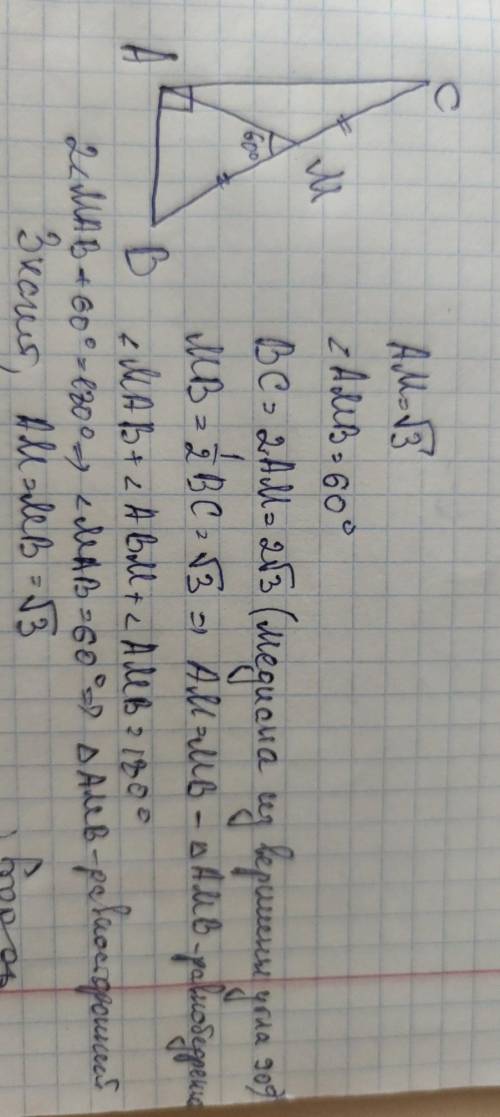 C
M
60°
A
B
AM=√3
∠AMB=60°
BC=2AM=2√3 (медиана из вершины угла 90°)
MB=1/2BC=√3 ⇒ AM=MB - △AMB-равнобедрен
∠MAB+∠ABM+∠AMB=180°
2∠MAB+60°=180° ⇒ ∠MAB=60° ⇒ △AMB-равносторонний
AM=MB=√3